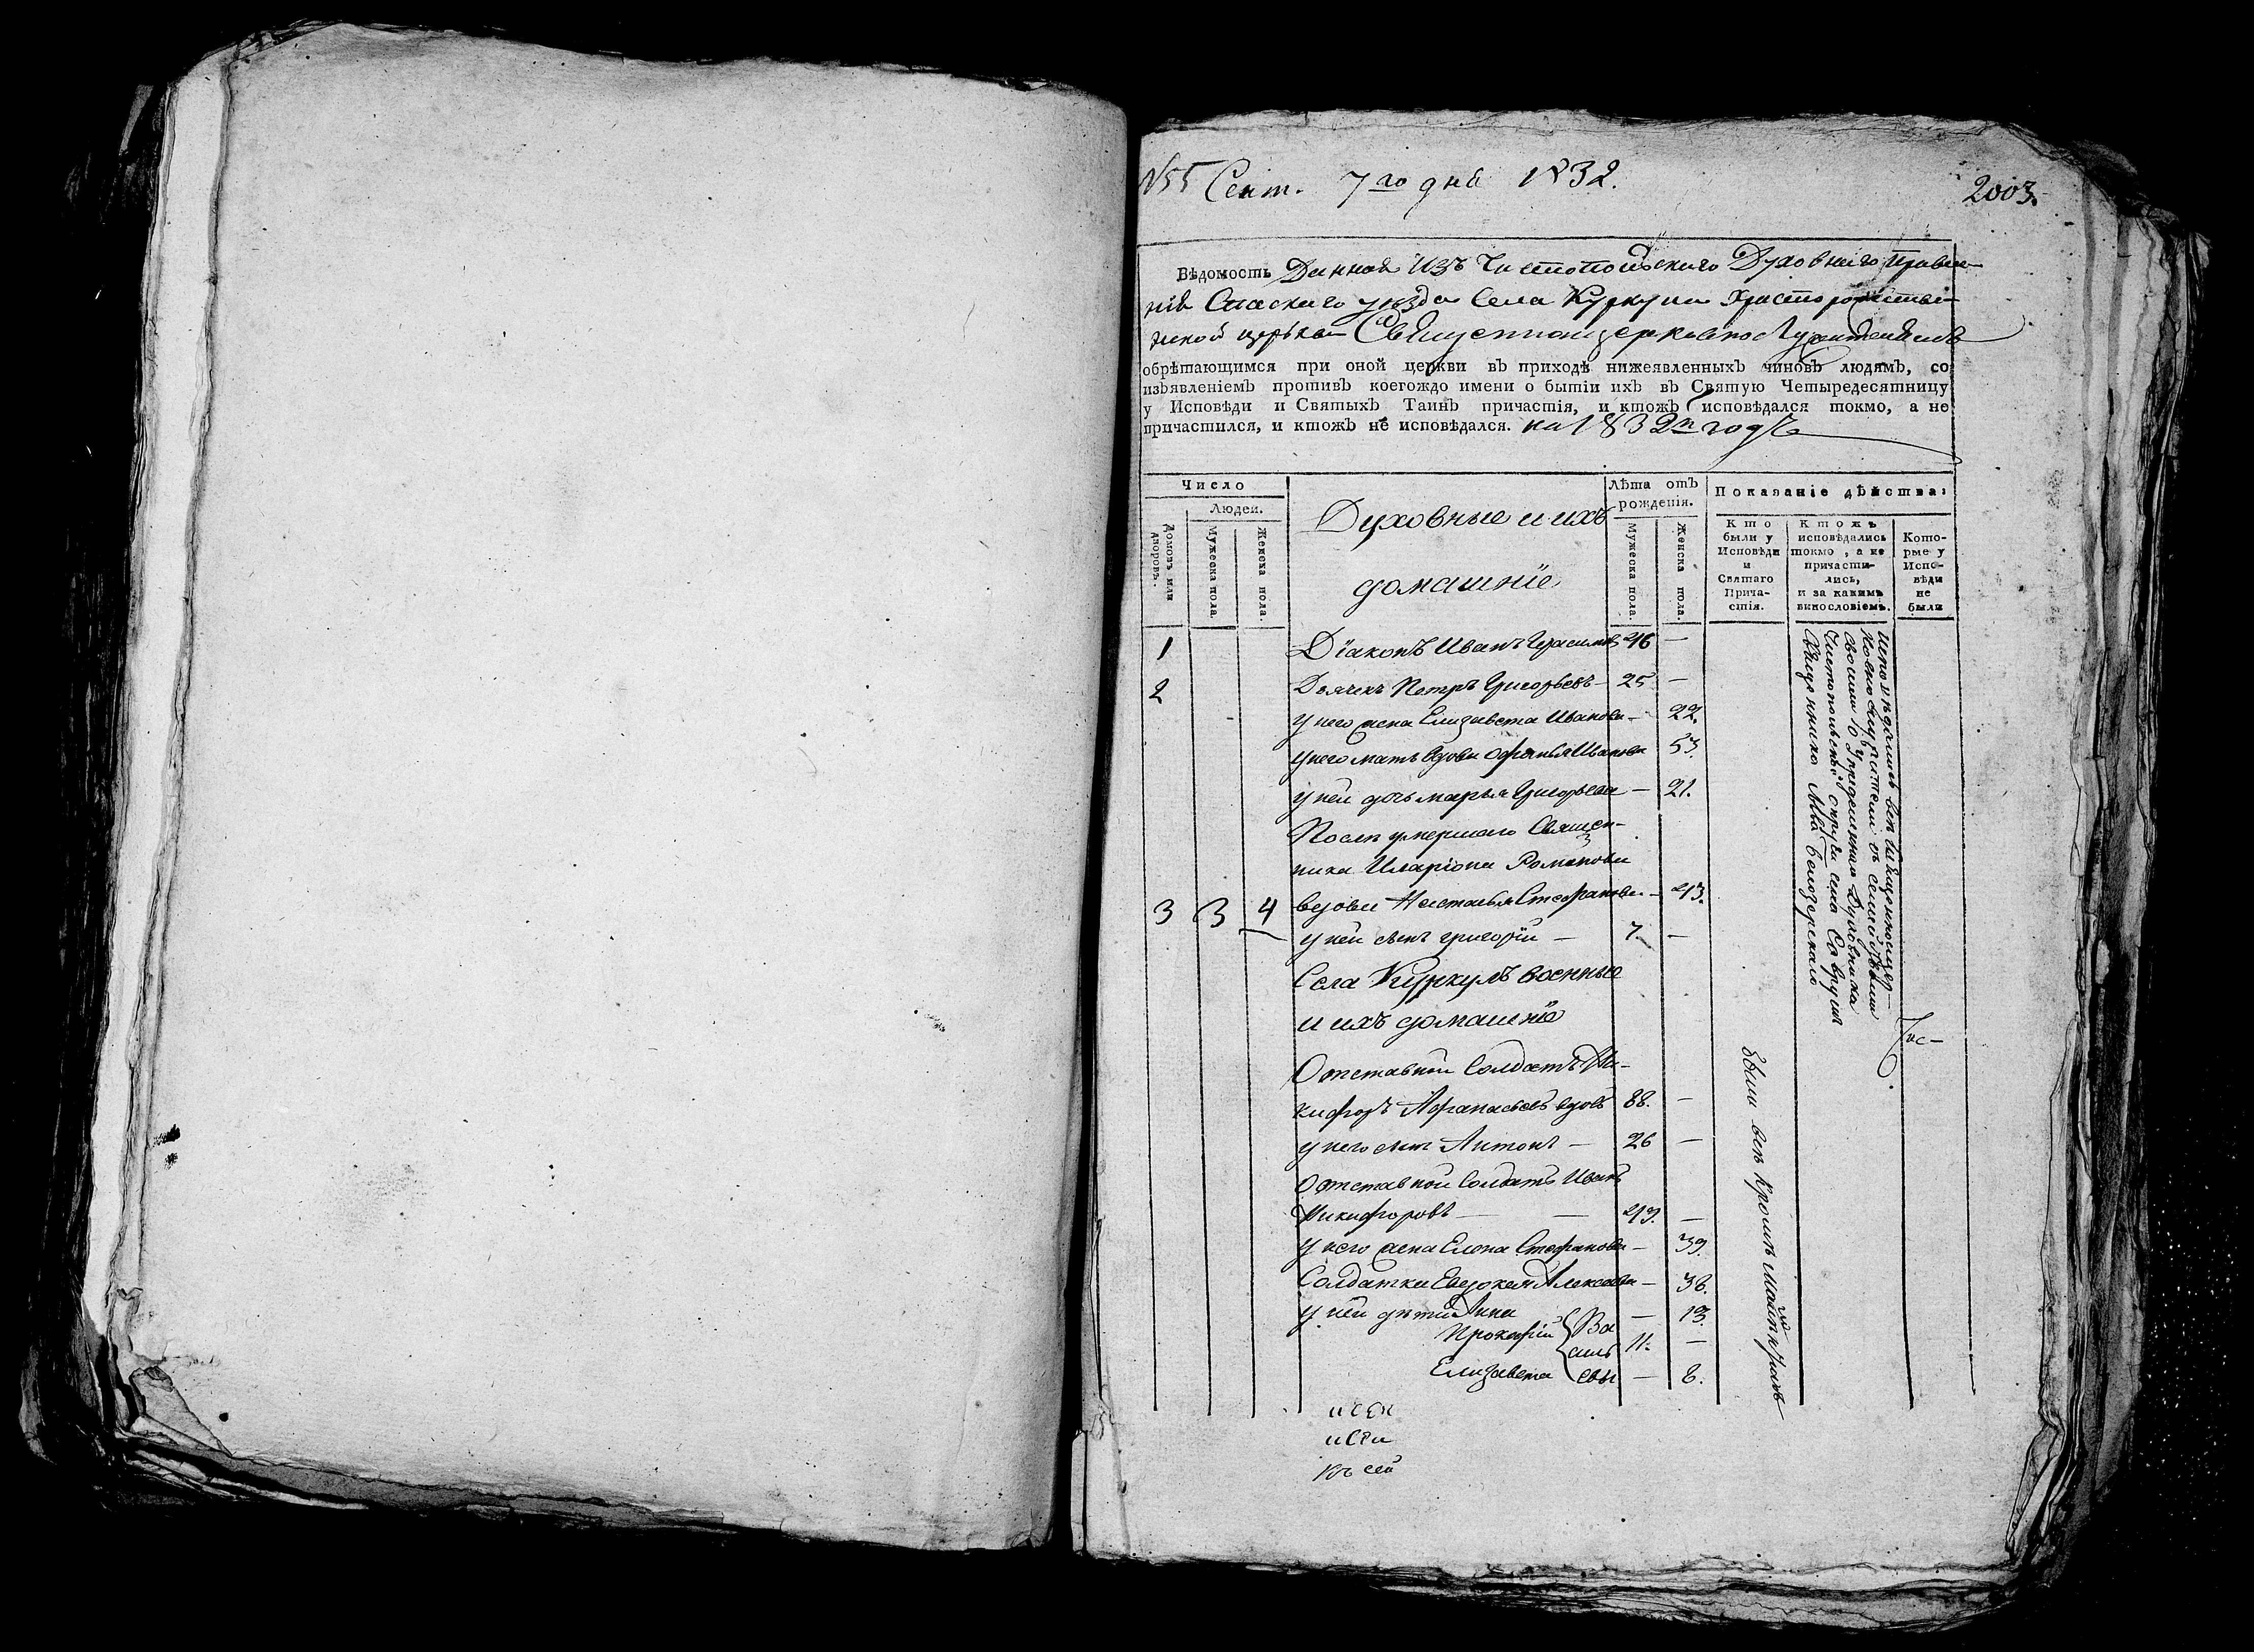 №55 Сент. 7го дня 1832.
2003.
Вѣдомость Данная изъ Чистопольскаго Духовнаго Правле-
нія Спаскаго уѣзда Села Куркуля Христорождествен-
ской церкви Священноцерковнослужителямъ
обрѣтающимся при оной церкви въ приходѣ нижеявленныхъ чиновъ людямъ, со
изъявленіемъ противъ коегождо имени о бытіи ихъ въ Святую Четыредесятницу
у Исповѣди и Святыхъ Таинъ причастія, и ктожъ исповѣдался токмо, а не
причастился, и ктожъ не исповѣдался. на 1832й годъ
Число
Людей.
Домовъ или дворовъ.
Мужеска пола.
Женска пола.
Духовные и ихъ
домашніе
Лѣта отъ
рожденія.
Мужеска пола.
Женска пола.
Показаніе дѣйства:
Кто
были у
Исповѣди
и
Святаго
Прича-
стія.
Ктожъ
исповѣдались
токмо, а не
причасти-
лись,
и за какимъ
винословіемъ.
Кото-
рые у
Испо-
вѣди
не
были
1 Діаконъ Иванъ Герасимовъ 46 —
2 Дьячекъ Петръ Григорьевъ — 25 —
у него жена Елизавета Иванова — 22.
у него мать вдова Офимья Иванова 53.
у ней дочь марья Григорьева — 21.
Послѣ умершаго Священ-
ника Иларіона Романова
3 3 4 вдова Настасья Стефанова — 43.
у ней сынъ григорій — 7. —
Села Куркуль военные
и ихъ домашніе
Отставной Солдатъ Ни-
кифоръ Афанасьевъ вдовъ 88. —
у него сынъ Антонъ — 26 —
Отставной Солдатъ Иванъ
Никифоровъ — — 43. —
у него жена Елена Стефанова — 39.
Солдатка Евдокея Алексѣева — 38.
у ней дѣти Анна — 13.
Прокофій Ва 11. —
силь
Елизавета евы — 8.
Исповѣдались всѣ Священноцер-
ковнослужители съ семействами
своими у опредѣленнаго Духовника
Чистопольской округи села Саврушъ
Священника Льва Белозерскаго
Были всѣ Кромѣ малолѣтнихъ